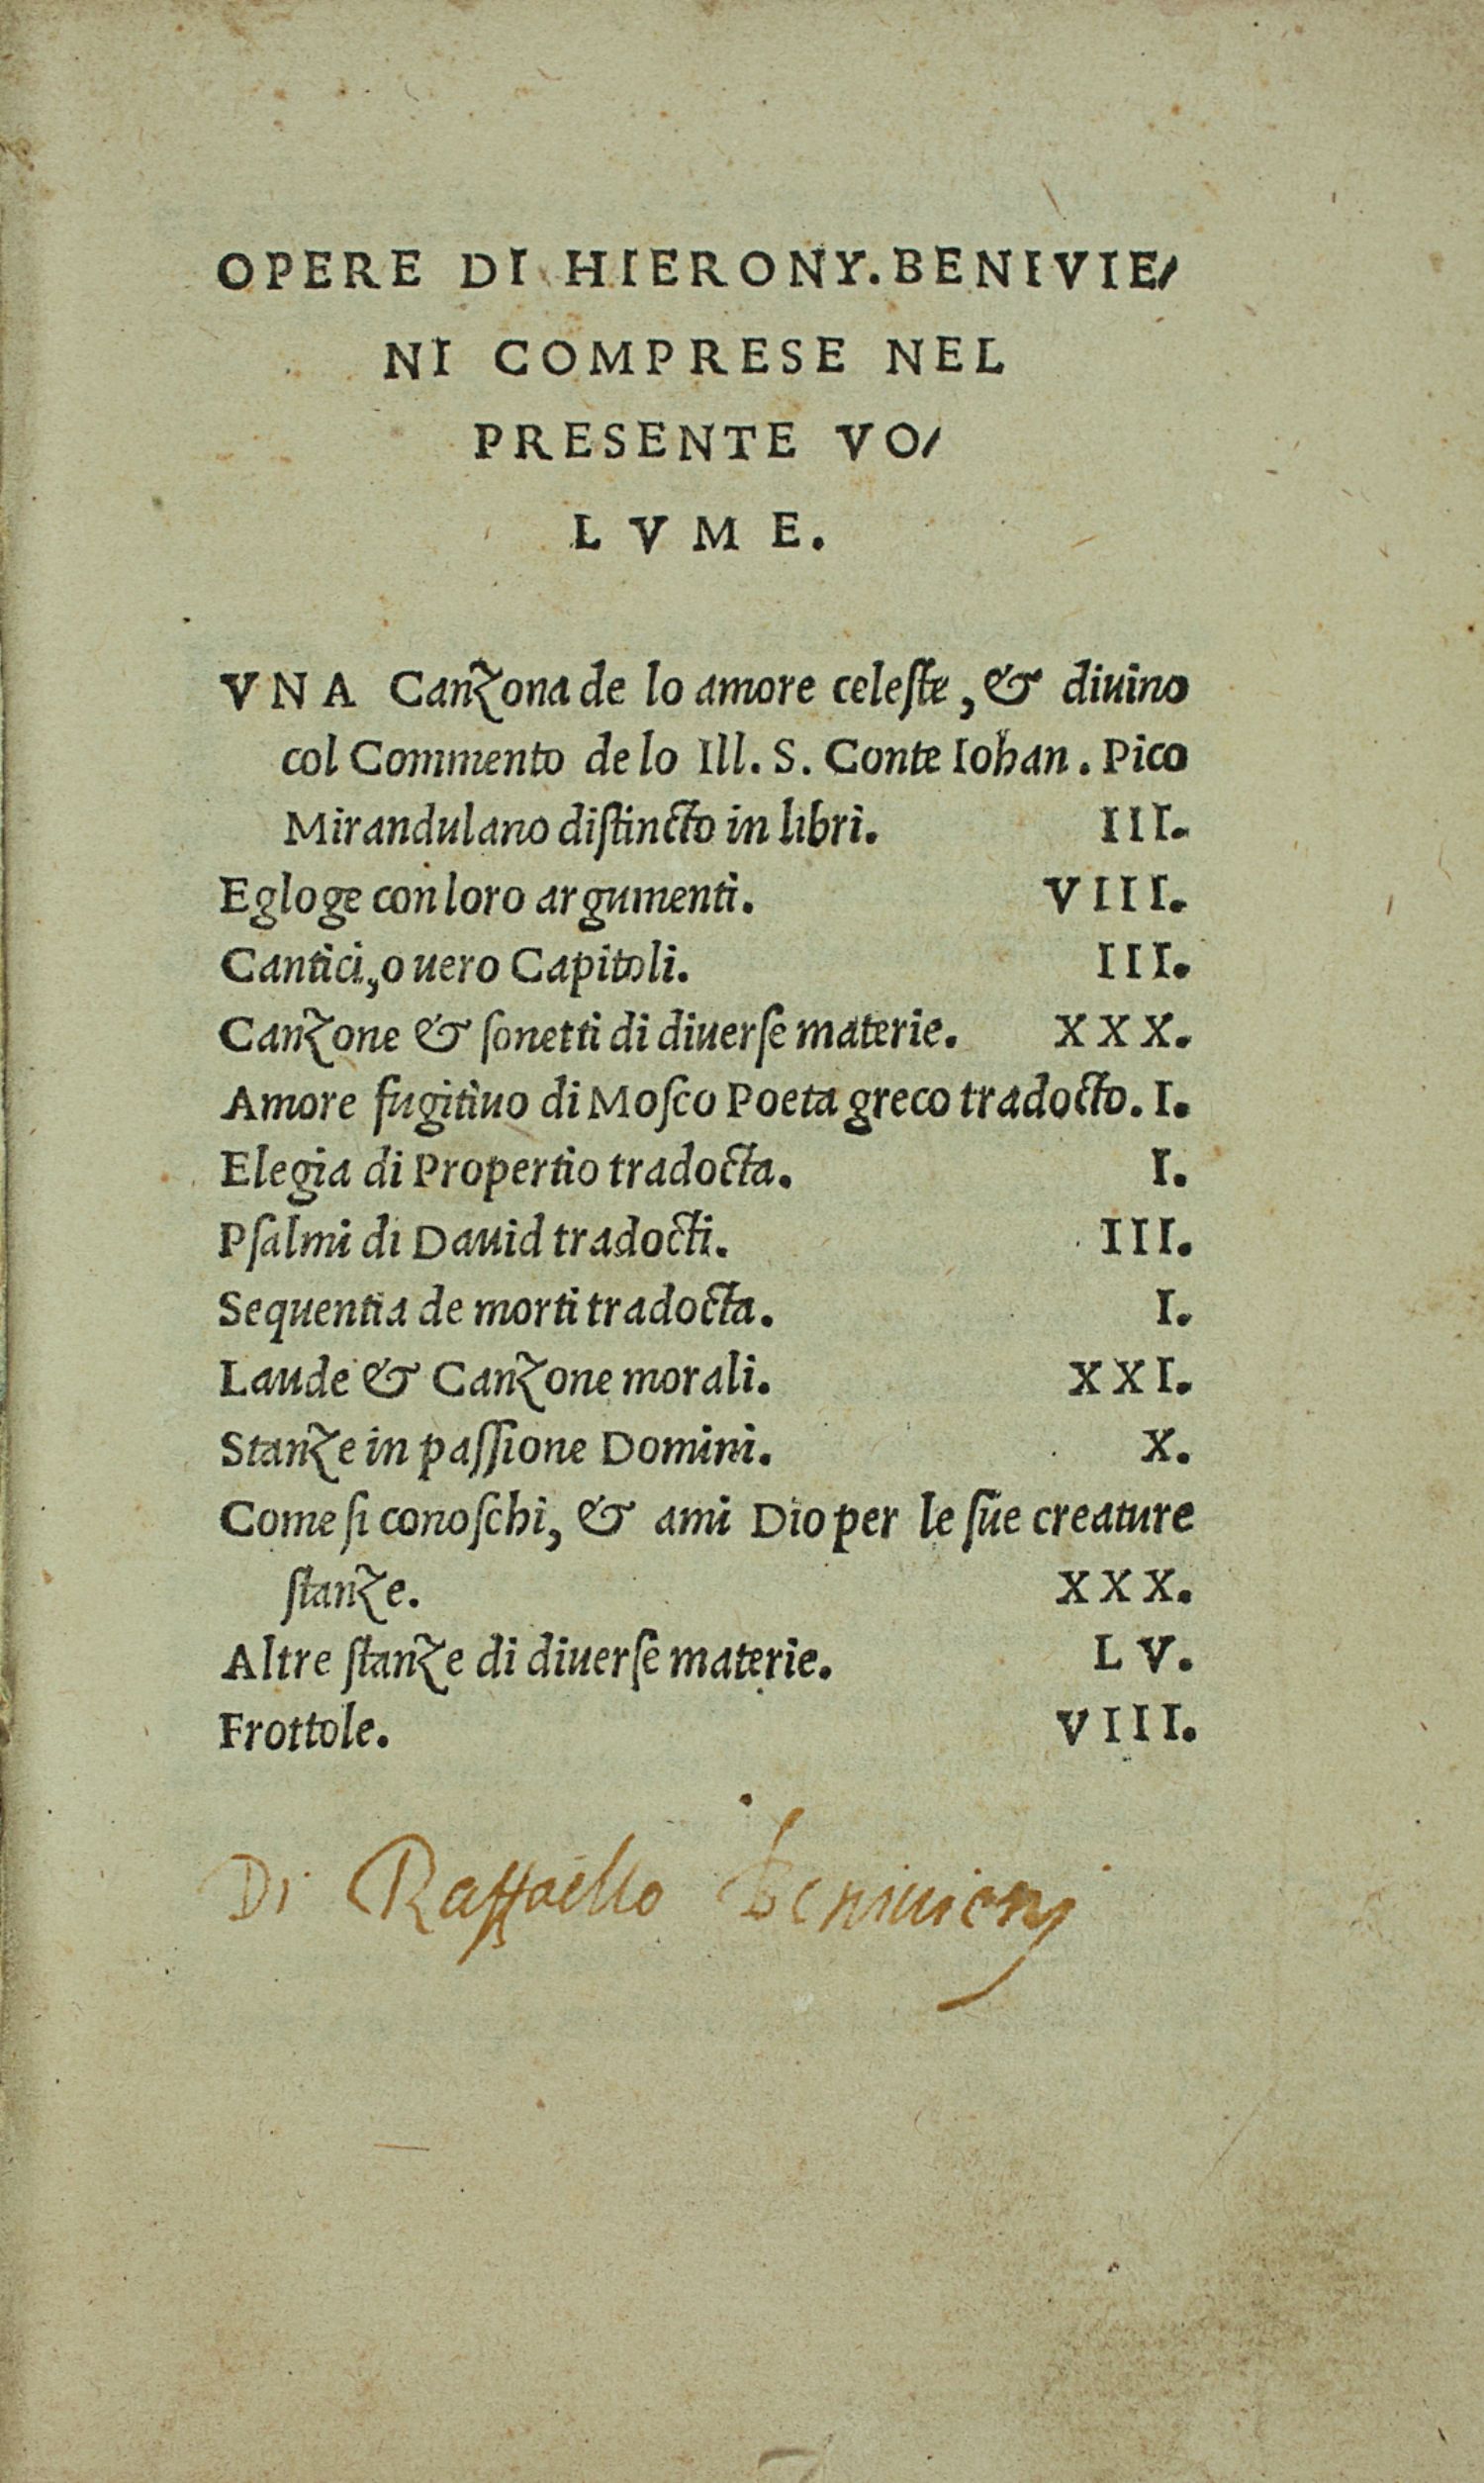 OPERE DI HIERONY. BENIVIE/
NI COMPRESE NEL
PRESENTE VO/
LVME.
VNA Canzona de lo amore celeſte, & diuino
col Commento de lo Ill. S. Conte Iohan. Pico
Mirandulano diſtincto in libri. III.
Egloge con loro argumenti. VIII.
Cantici, o uero Capitoli. III.
Canzone & ſonetti di diuerſe materie. XXX.
Amore fugitiuo di Moſco Poeta greco tradocto. I.
Elegia di Propertio tradocta. I.
Pſalmi di Dauid tradocti. III.
Sequentia de morti tradocta. I.
Laude & Canzone morali. XXI.
Stanze in paſſione Domini. X.
Come ſi conoſchi, & ami Dio per le ſue creature
ſtanze. XXX.
Altre ſtanze di diuerſe materie. LV.
Frottole. VIII.
Di Raffaello beniuieni